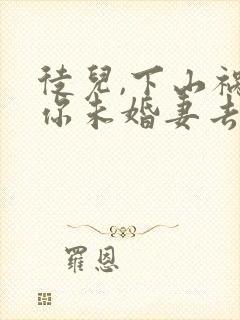 徒兒,下山禍
你未婚妻去
羅恩